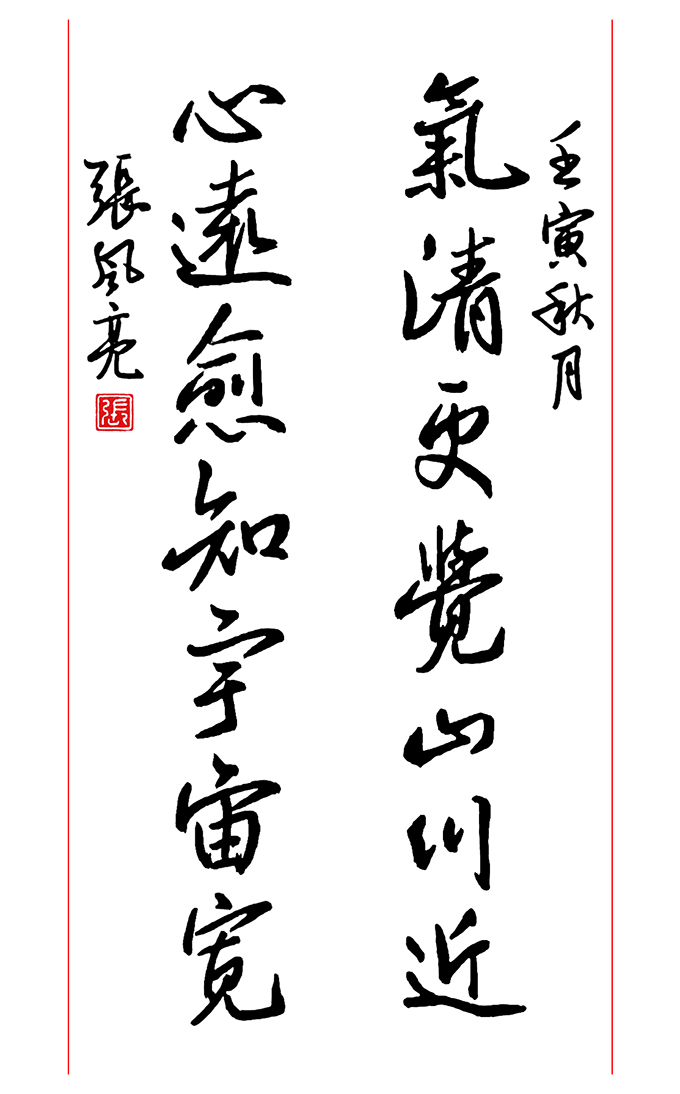 壬寅秋月
氣清更覺山川近
心遠愈知宇宙寬
張風亮
張